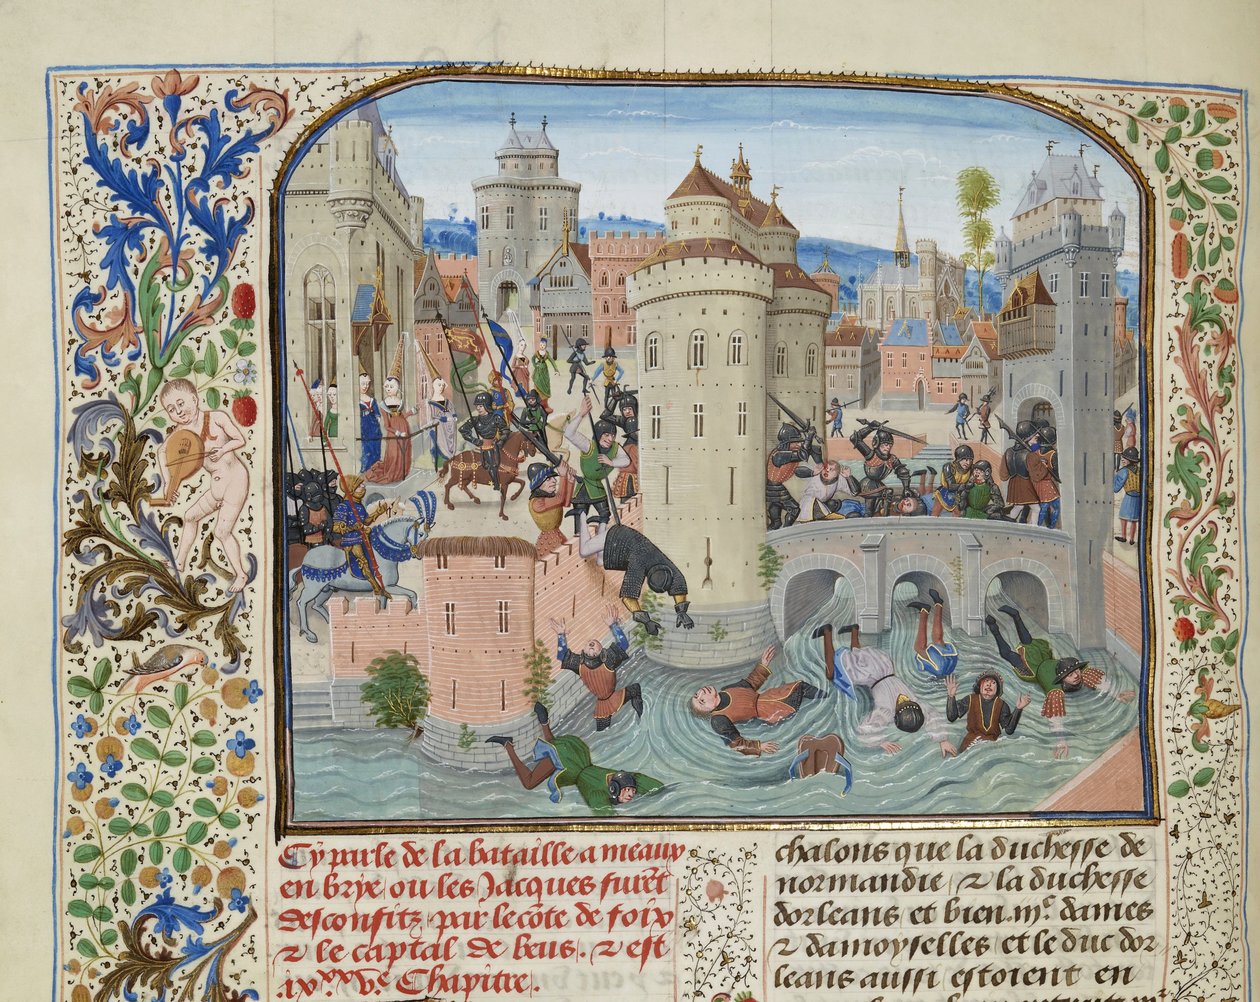 Cy parle de la bataille a meaux
en brye, ou les Jacques furēt
desconfitz par le cōte de foix
⁊ le captal de beus. ⁊ est
.ixˣˣ.vᵉ. Chapitre.
chalons que la duchesse de
normandie, ⁊ la duchesse
dorleans et bien .iijᶜ. dames
⁊ damoyselles et le duc dor
leans aussi estoient en